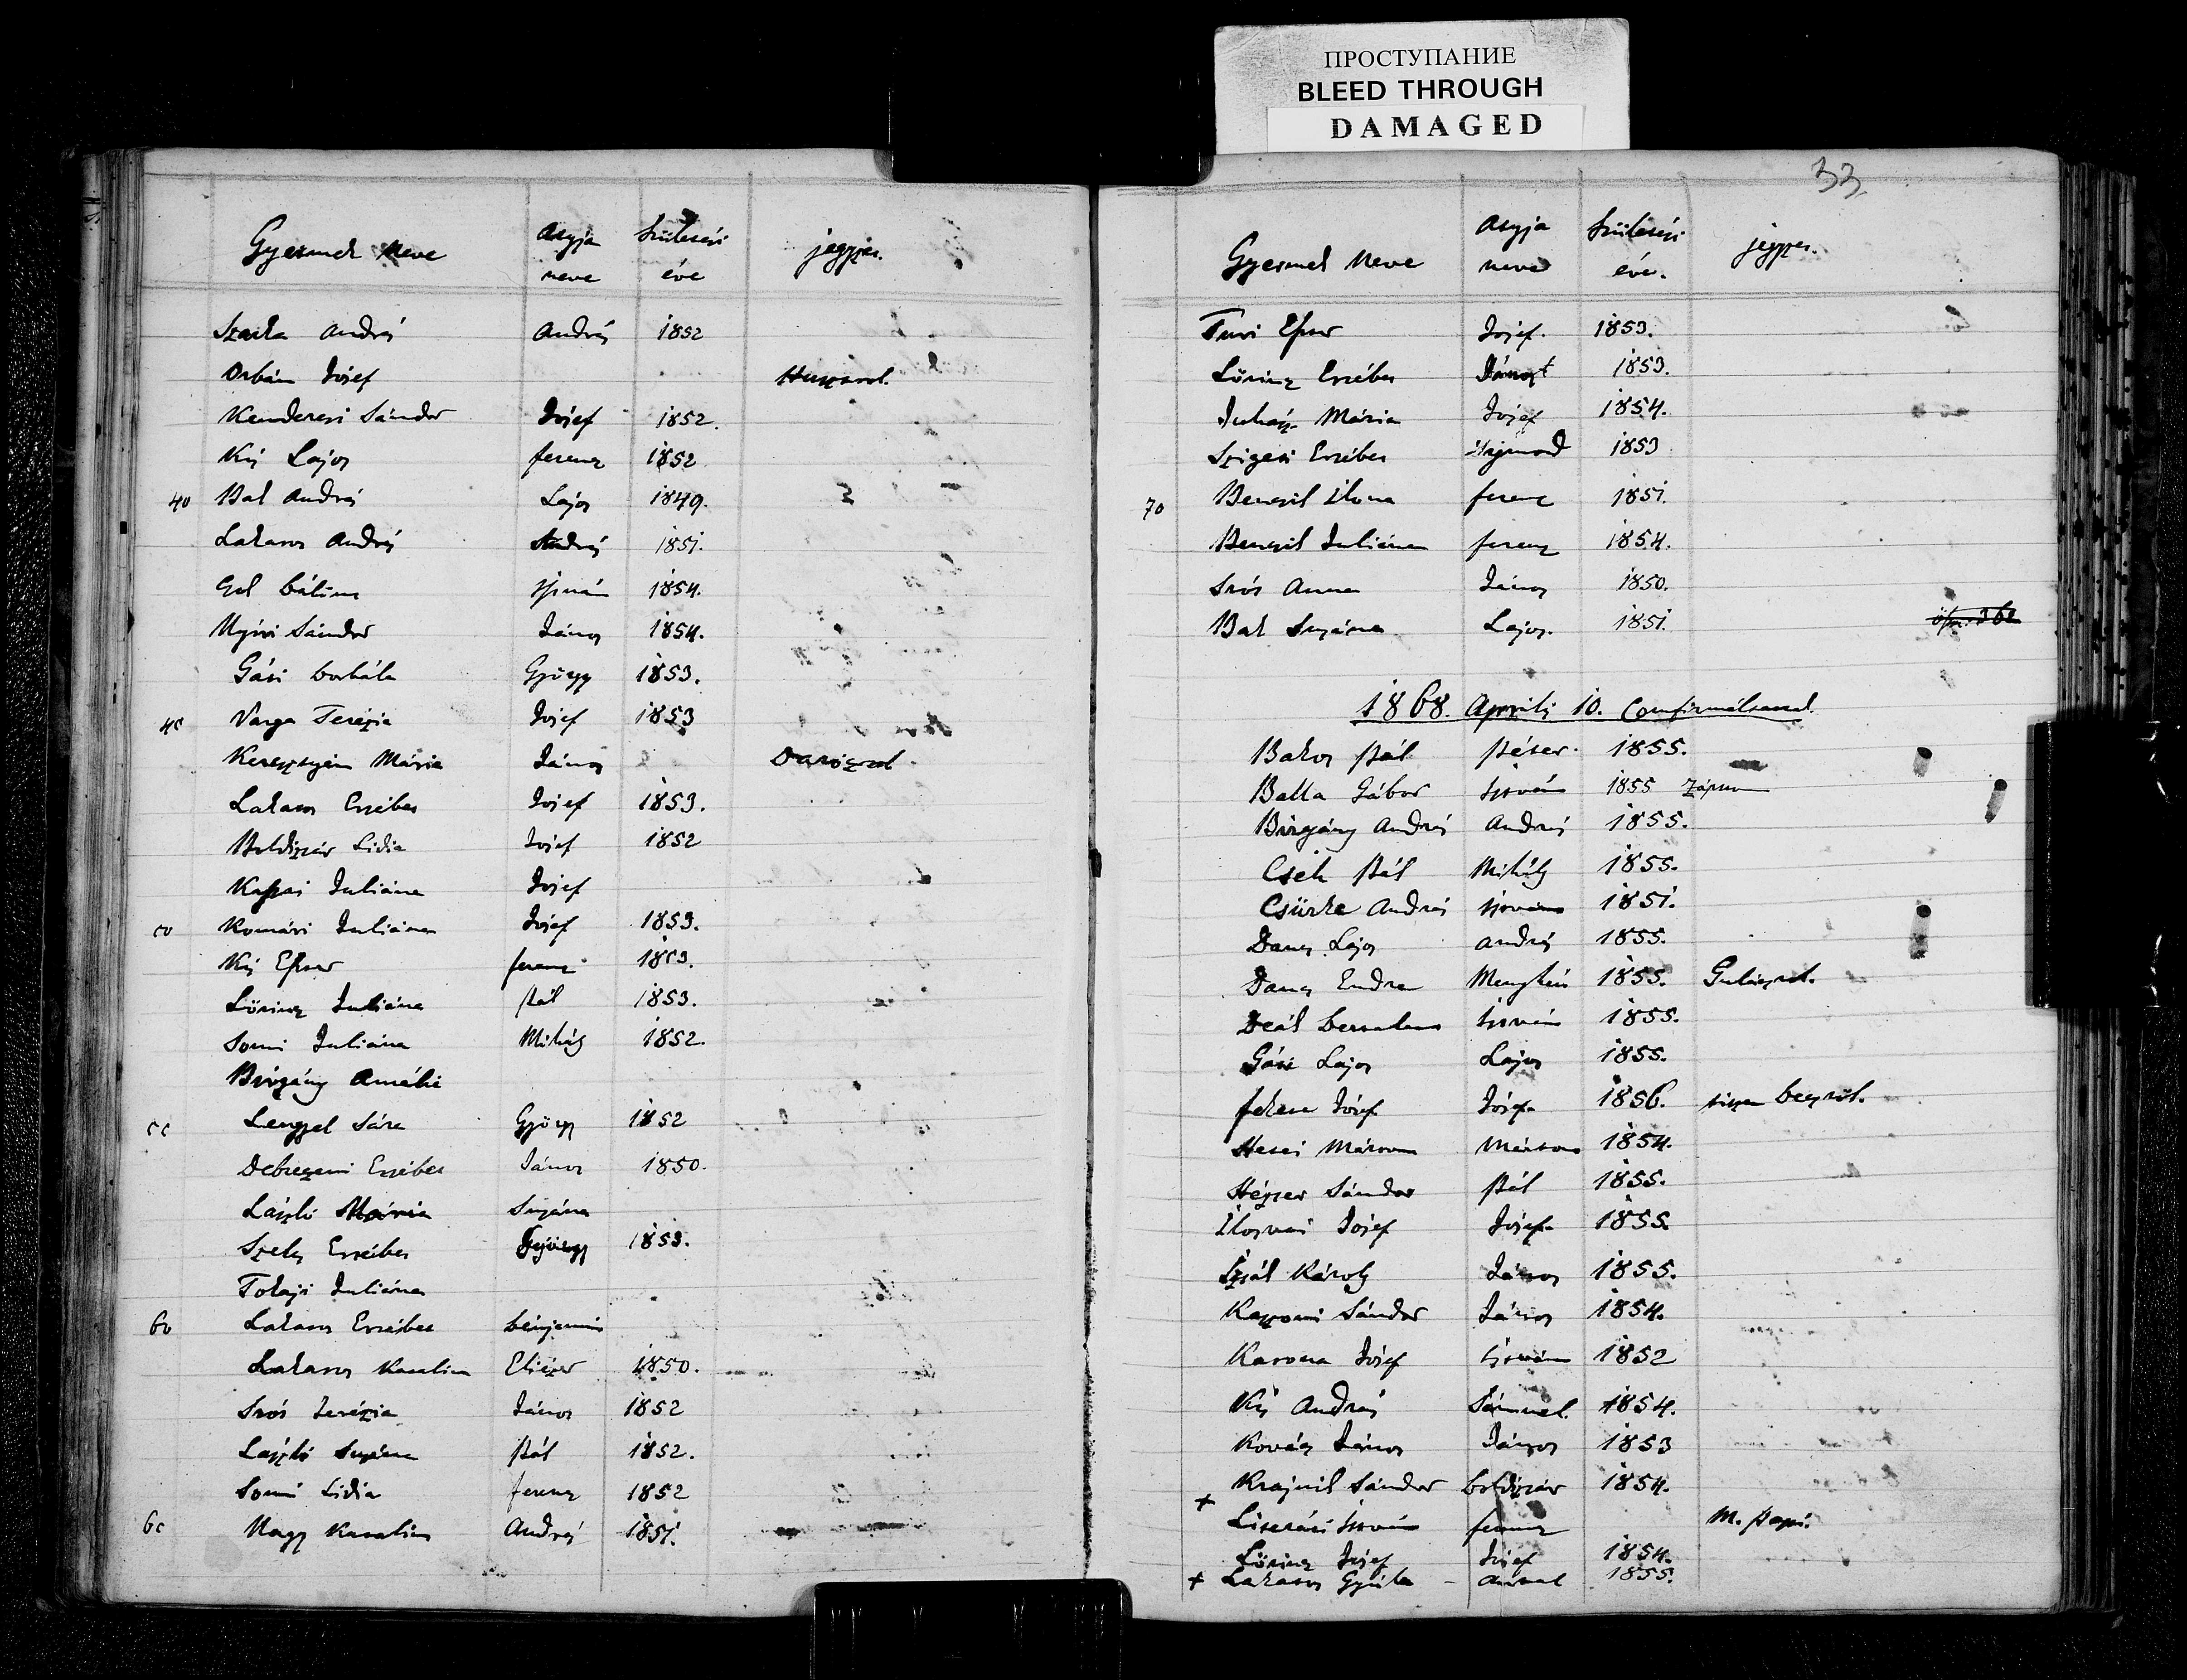 ПРОСТУПАНИЕ
BLEED THROUGH
DAMAGED
Gyermek Neve Atyja neve Születési éve jegyzes.
Szarka András András 1852
Orbán József
Kenderesi Sándor József 1852.
Kis Lajos ferencz 1852
40 Bak András Lajos 1849.
Lakatos András András 1851.
Gál Bálint István 1854.
Nyíri Sándor János 1854.
Gári borbála György 1853.
45 Varga Terézia József 1853
Keresztyén Mária János
Lakatos Erzsébet József 1853.
Boldizsár Lidia József 1852
Kassai Juliána József
50 Komári Juliána József 1853.
Kis Eszter ferencz 1853.
Lörincz Juliána Pál 1853.
Somi Juliána Mihály 1852.
Bózgány Amália
55 Lengyel Sára György 1852
Debreczeni Erzsébet János 1850.
László Mária Susána
Szély Erzsébet György 1853.
Tokaji Juliána
60 Lakatos Erzsébet benjamin
Lakatos Katalin Eliézer 1850.
Soós Terézia János 1852
László Susána Pál 1852.
Somi Lidia ferencz 1852
65 Nagy Katalin András 1851.
33.
Gyermek Neve Atyja neve Születési éve. jegyzes.
Turi Eszter József 1853.
Lörincz Erzsébet János 1853.
Juhász Mária József 1854.
Szigeti Erzsébet Sigmond 1853
70 Benczik Ilona ferencz 1851.
Benczik Juliána ferencz 1854.
Soós Anna János 1850.
Bak Susána Lajos. 1851.
1868. Aprilis 10. Confirmáltattak.
Bakos Pál Péter 1855.
Balla Gábor István 1855
Bózgány András András 1855.
Cseh Pál Mihály 1855.
Csürke András István 1851.
Dancs Lajos András 1855.
Dancs Endre Menyhért 1855.
Deák bertalan István 1855.
Gári Lajos Lajos 1855.
fekete József József 1856.
Hetei Márton Márton 1854.
Hégyer Sándor Pál 1855.
Ilosvai József József 1855.
Szják Károly János 1855.
Kaszonyi Sándor János 1854.
Katona József István 1852
Kis András Sámuel 1854.
Kovács János János 1853
Krajnik Sándor boldizsár 1854.
+ István ferencz
Lörincz József József 1854.
+ Lakatos Gyula Antal 1855.